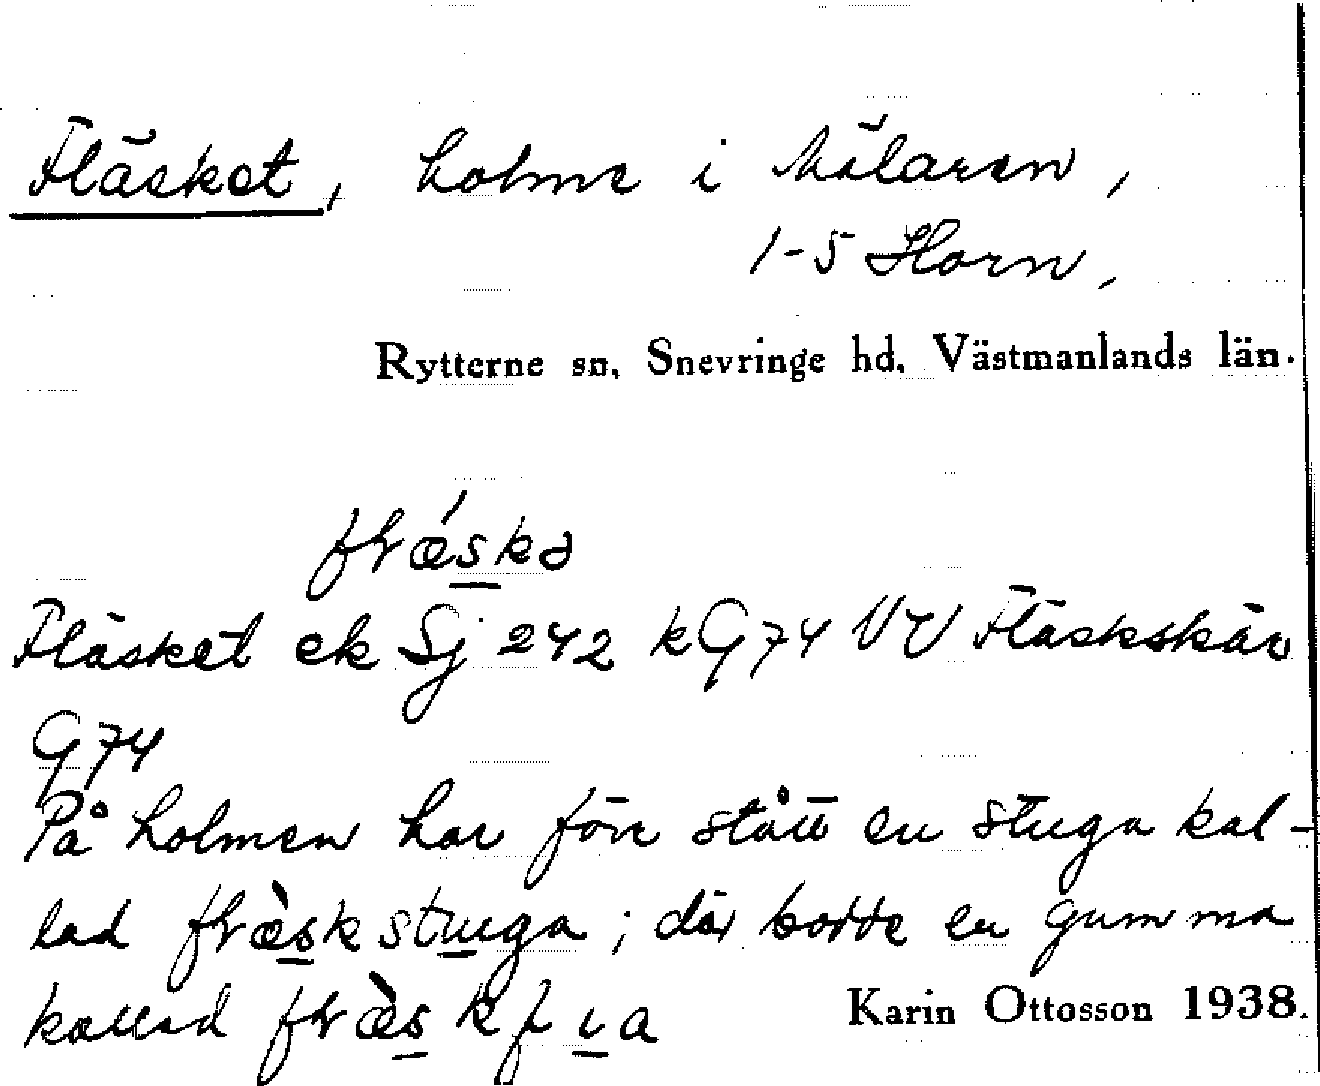 Fläsket, holme i Mälaren,
1-5 Horn,
Rytterne sn. Snevringe hd. Västmanlands län.
frǽskə
Fläsket ek Sj 242 kG74 VV Fläskskär
G74
På holmen har förr stått en stuga kal-
lad fræ̀skstuga; där bodde en gumma
kallad
Karin Ottosson 1938.